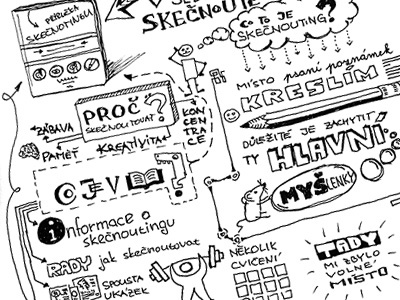 PŘÍRUČKA
SKEČNOUTINGU
SKEČNOUTE
CO TO JE
SKEČNOUTING?
PROČ
SKEČNOUTOVAT?
ZÁBAVA
PAMĚŤ
KREATIVITA
KONCENTRACE
MÍSTO psaní poznámek
KRESLÍM
DŮLEŽITÉ JE ZACHYTIT
TY HLAVNÍ
MYŠLENKY
CO JE V
informace o
skečnoutingu
RADY jak skečnoutovat
SPOUSTA
UKÁZEK
NĚKOLIK
CVIČENÍ
TADY
MI ZBYLO
VOLNÉ
MÍSTO